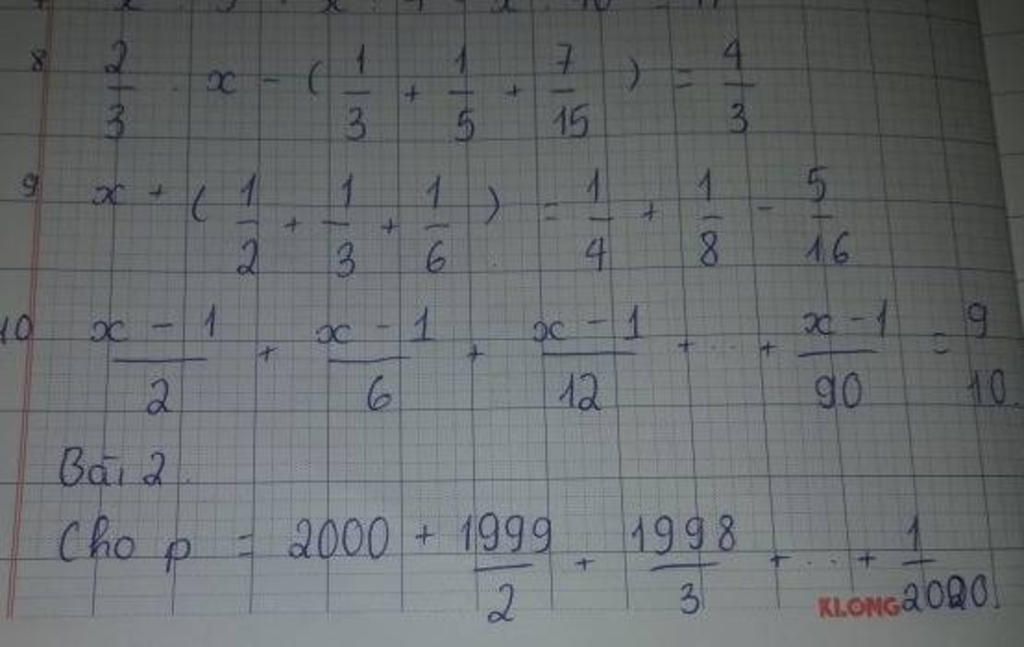 8 2/3 . x - ( 1/3 + 1/5 + 7/15 ) = 4/3
9 x + ( 1/2 + 1/3 + 1/6 ) = 1/4 + 1/8 - 5/16
10 x - 1/2 + x - 1/6 + x - 1/12 + ... + x - 1/90 = 9/10
Bài 2.
Cho p = 2000 + 1999/2 + 1998/3 + ... + 1/2000
KLONG